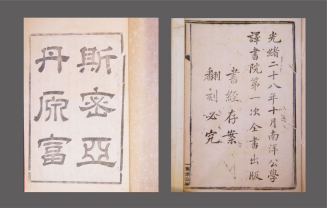 斯密亞
丹原富
光緒二十八年十月南洋公學
譯書院第一次全書出版
書經存案
翻刻必究